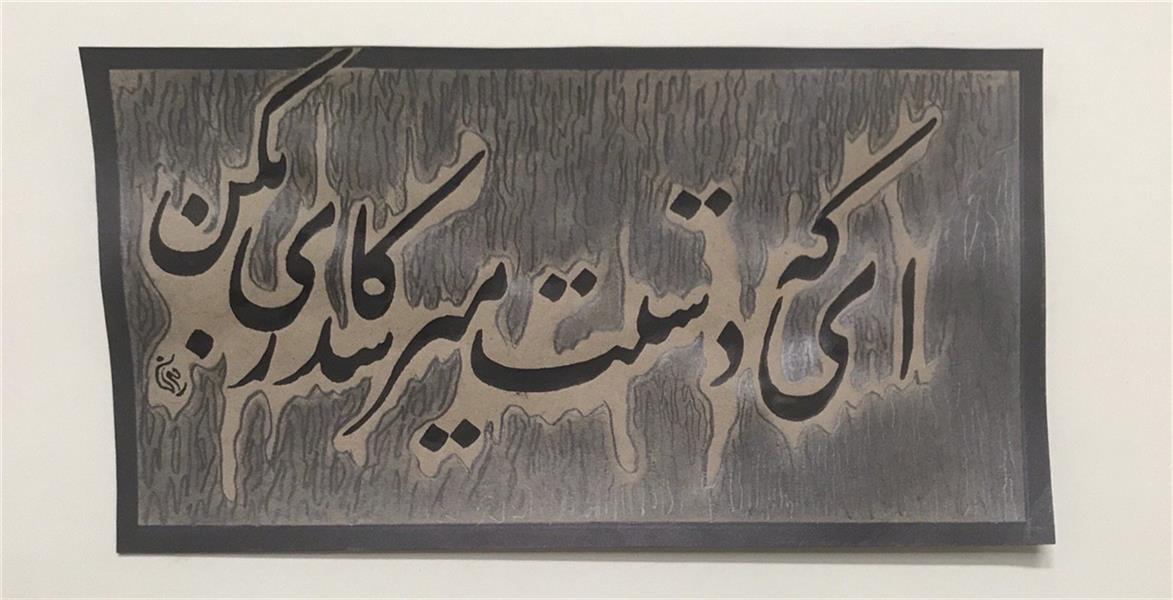 ای که دستت میرسد کاری بکن